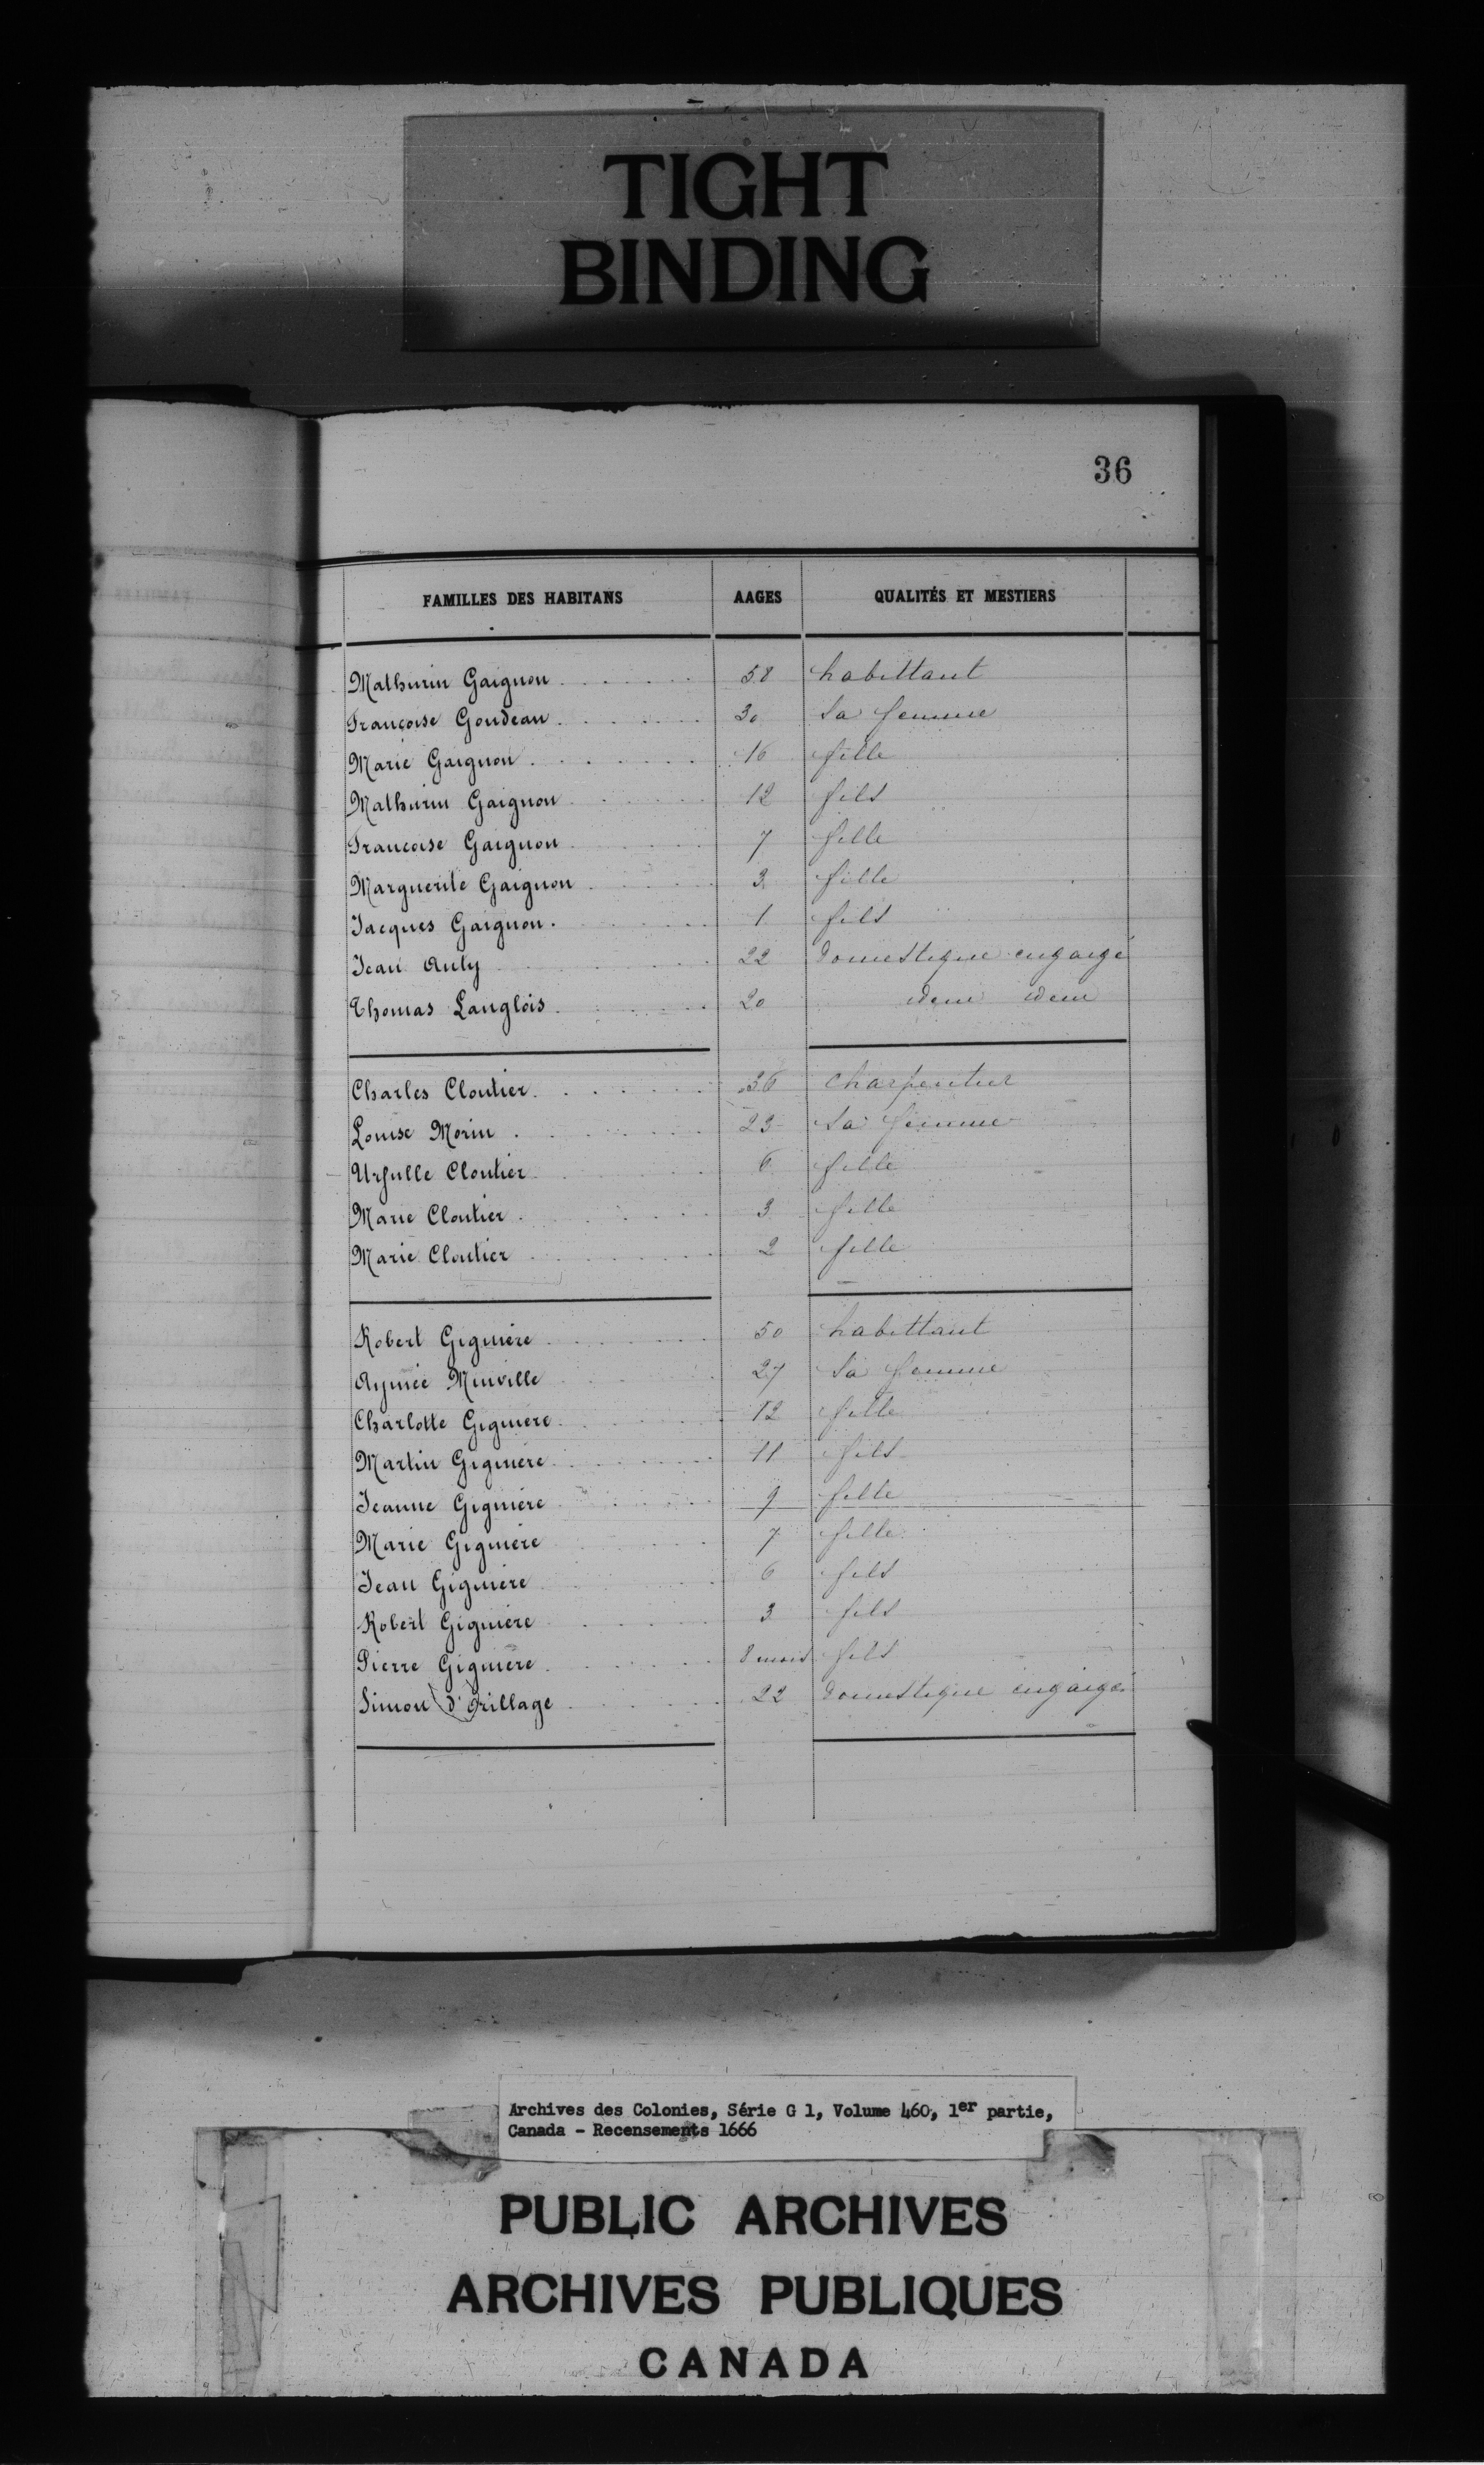 TIGHT
BINDING
36
FAMILLES DES HABITANS AAGES QUALITÉS ET MESTIERS
Mathurin Gaignon 58 habittant
Françoise Goudeau 30 sa femme
Marie Gaignon 16 fille
Mathurin Gaignon 12 fils
Francoise Gaignon 7 fille
Marguerite Gaignon 3 fille
Jacques Gaignon 1 fils
Jean Auly 22 domestique engaigé
Thomas Langlois 20 idem idem
Charles Cloutier 36 charpentier
Louise Morin 23 sa femme
Ursulle Cloutier 6 fille
Marie Cloutier 3 fille
Marie Cloutier 2 fille
Robert Giguiére 50 habittant
Aymée Minville 27 sa femme
Charlotte Giguiére 12 fille
Martin Giguiére 11 fils
Jeanne Giguiére 9 fille
Marie Giguiére 7 fille
Jean Giguiére 6 fils
Robert Giguiére 3 fils
Pierre Giguiére 8 mois fils
Simon d'Orillage 22 domestique engaigé
Archives des Colonies, Série G 1, Volume 460, 1er partie,
Canada - Recensements 1666
PUBLIC ARCHIVES
ARCHIVES PUBLIQUES
CANADA